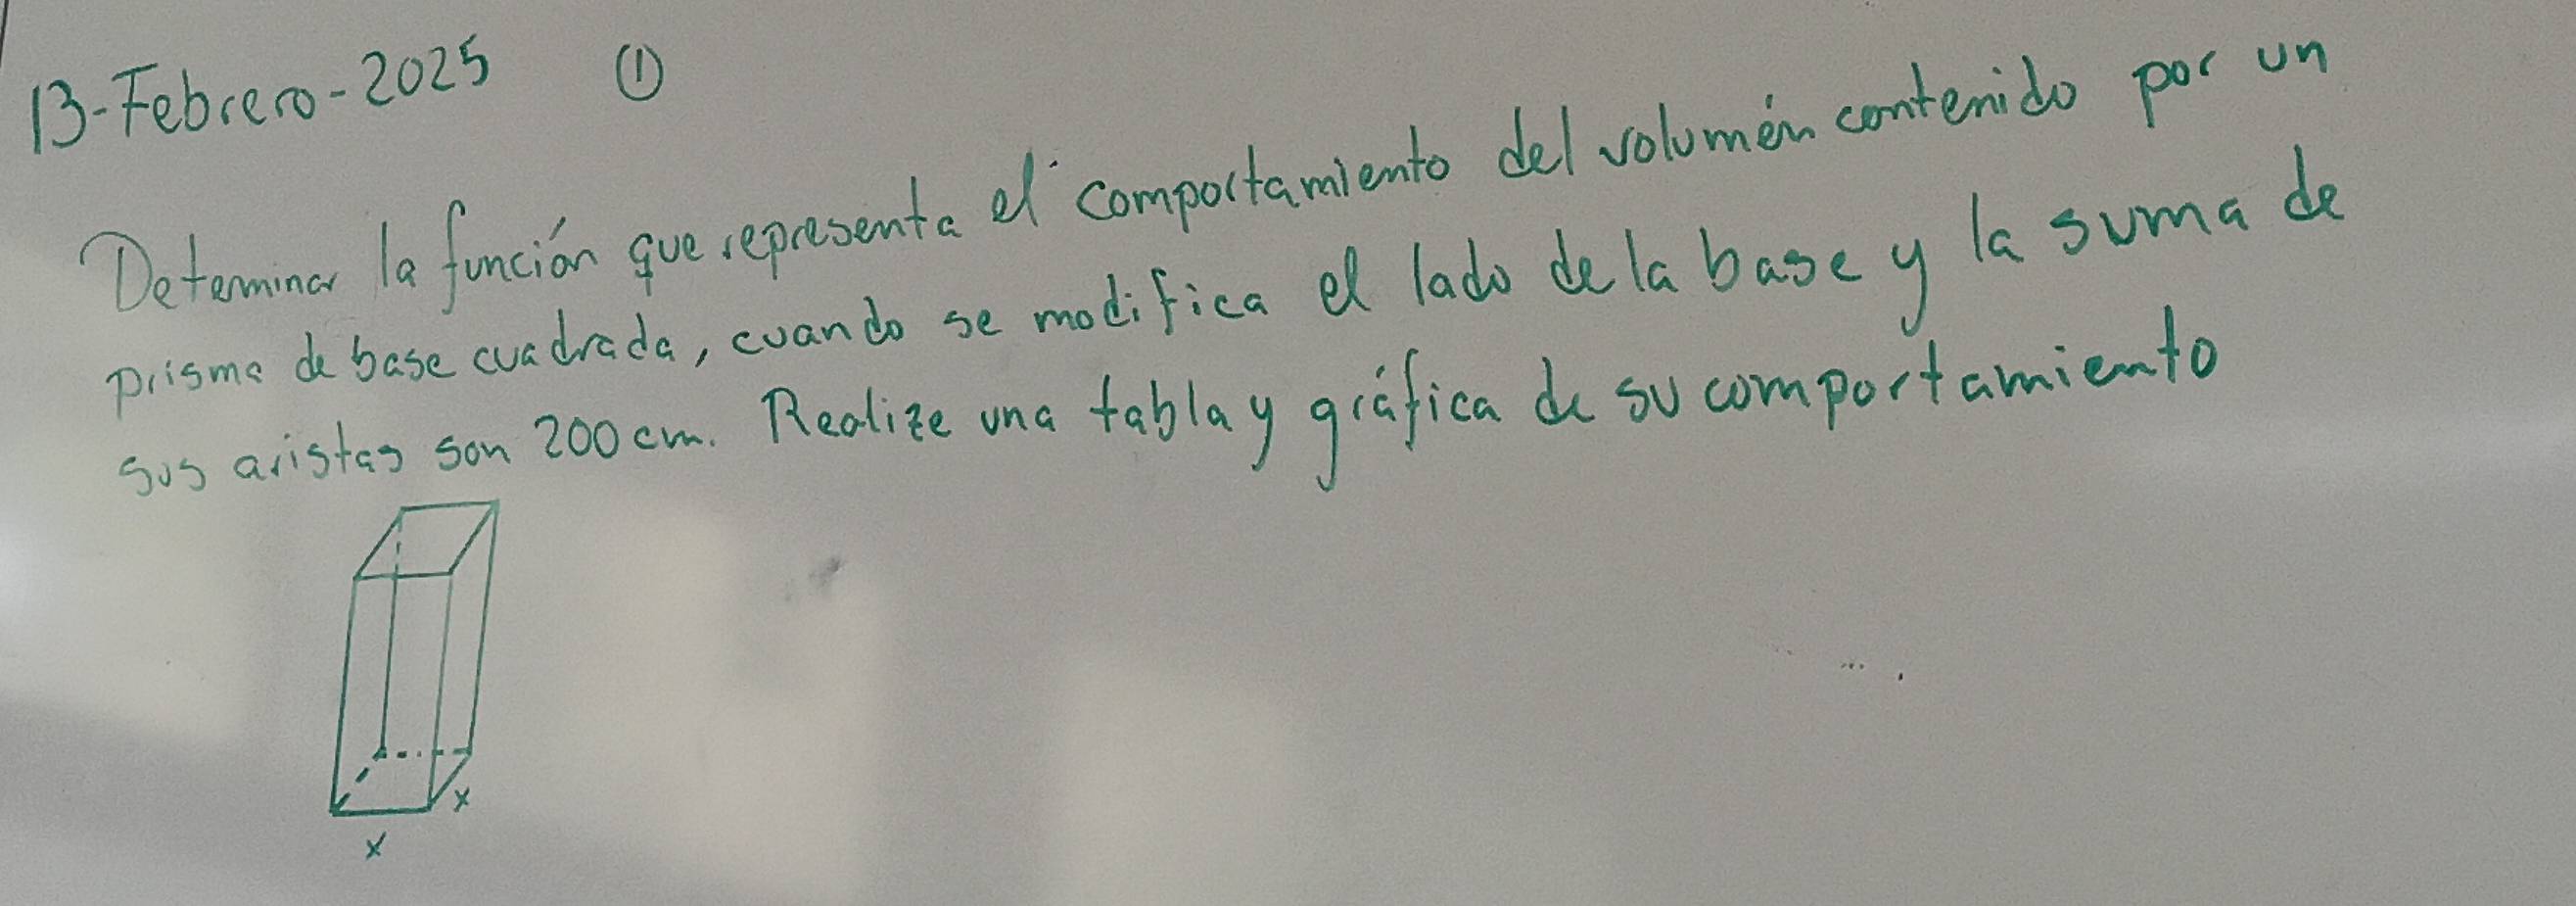 13-Febrero-2025 ①
Determinar la función que representa el comportamiento del volumén contenido por un
prisma de base cuadrada, cuando se modifica el lado de la base y la suma de
sus aristas son 200 cm. Realize una tabla y gráfica de su comportamiento
x
x